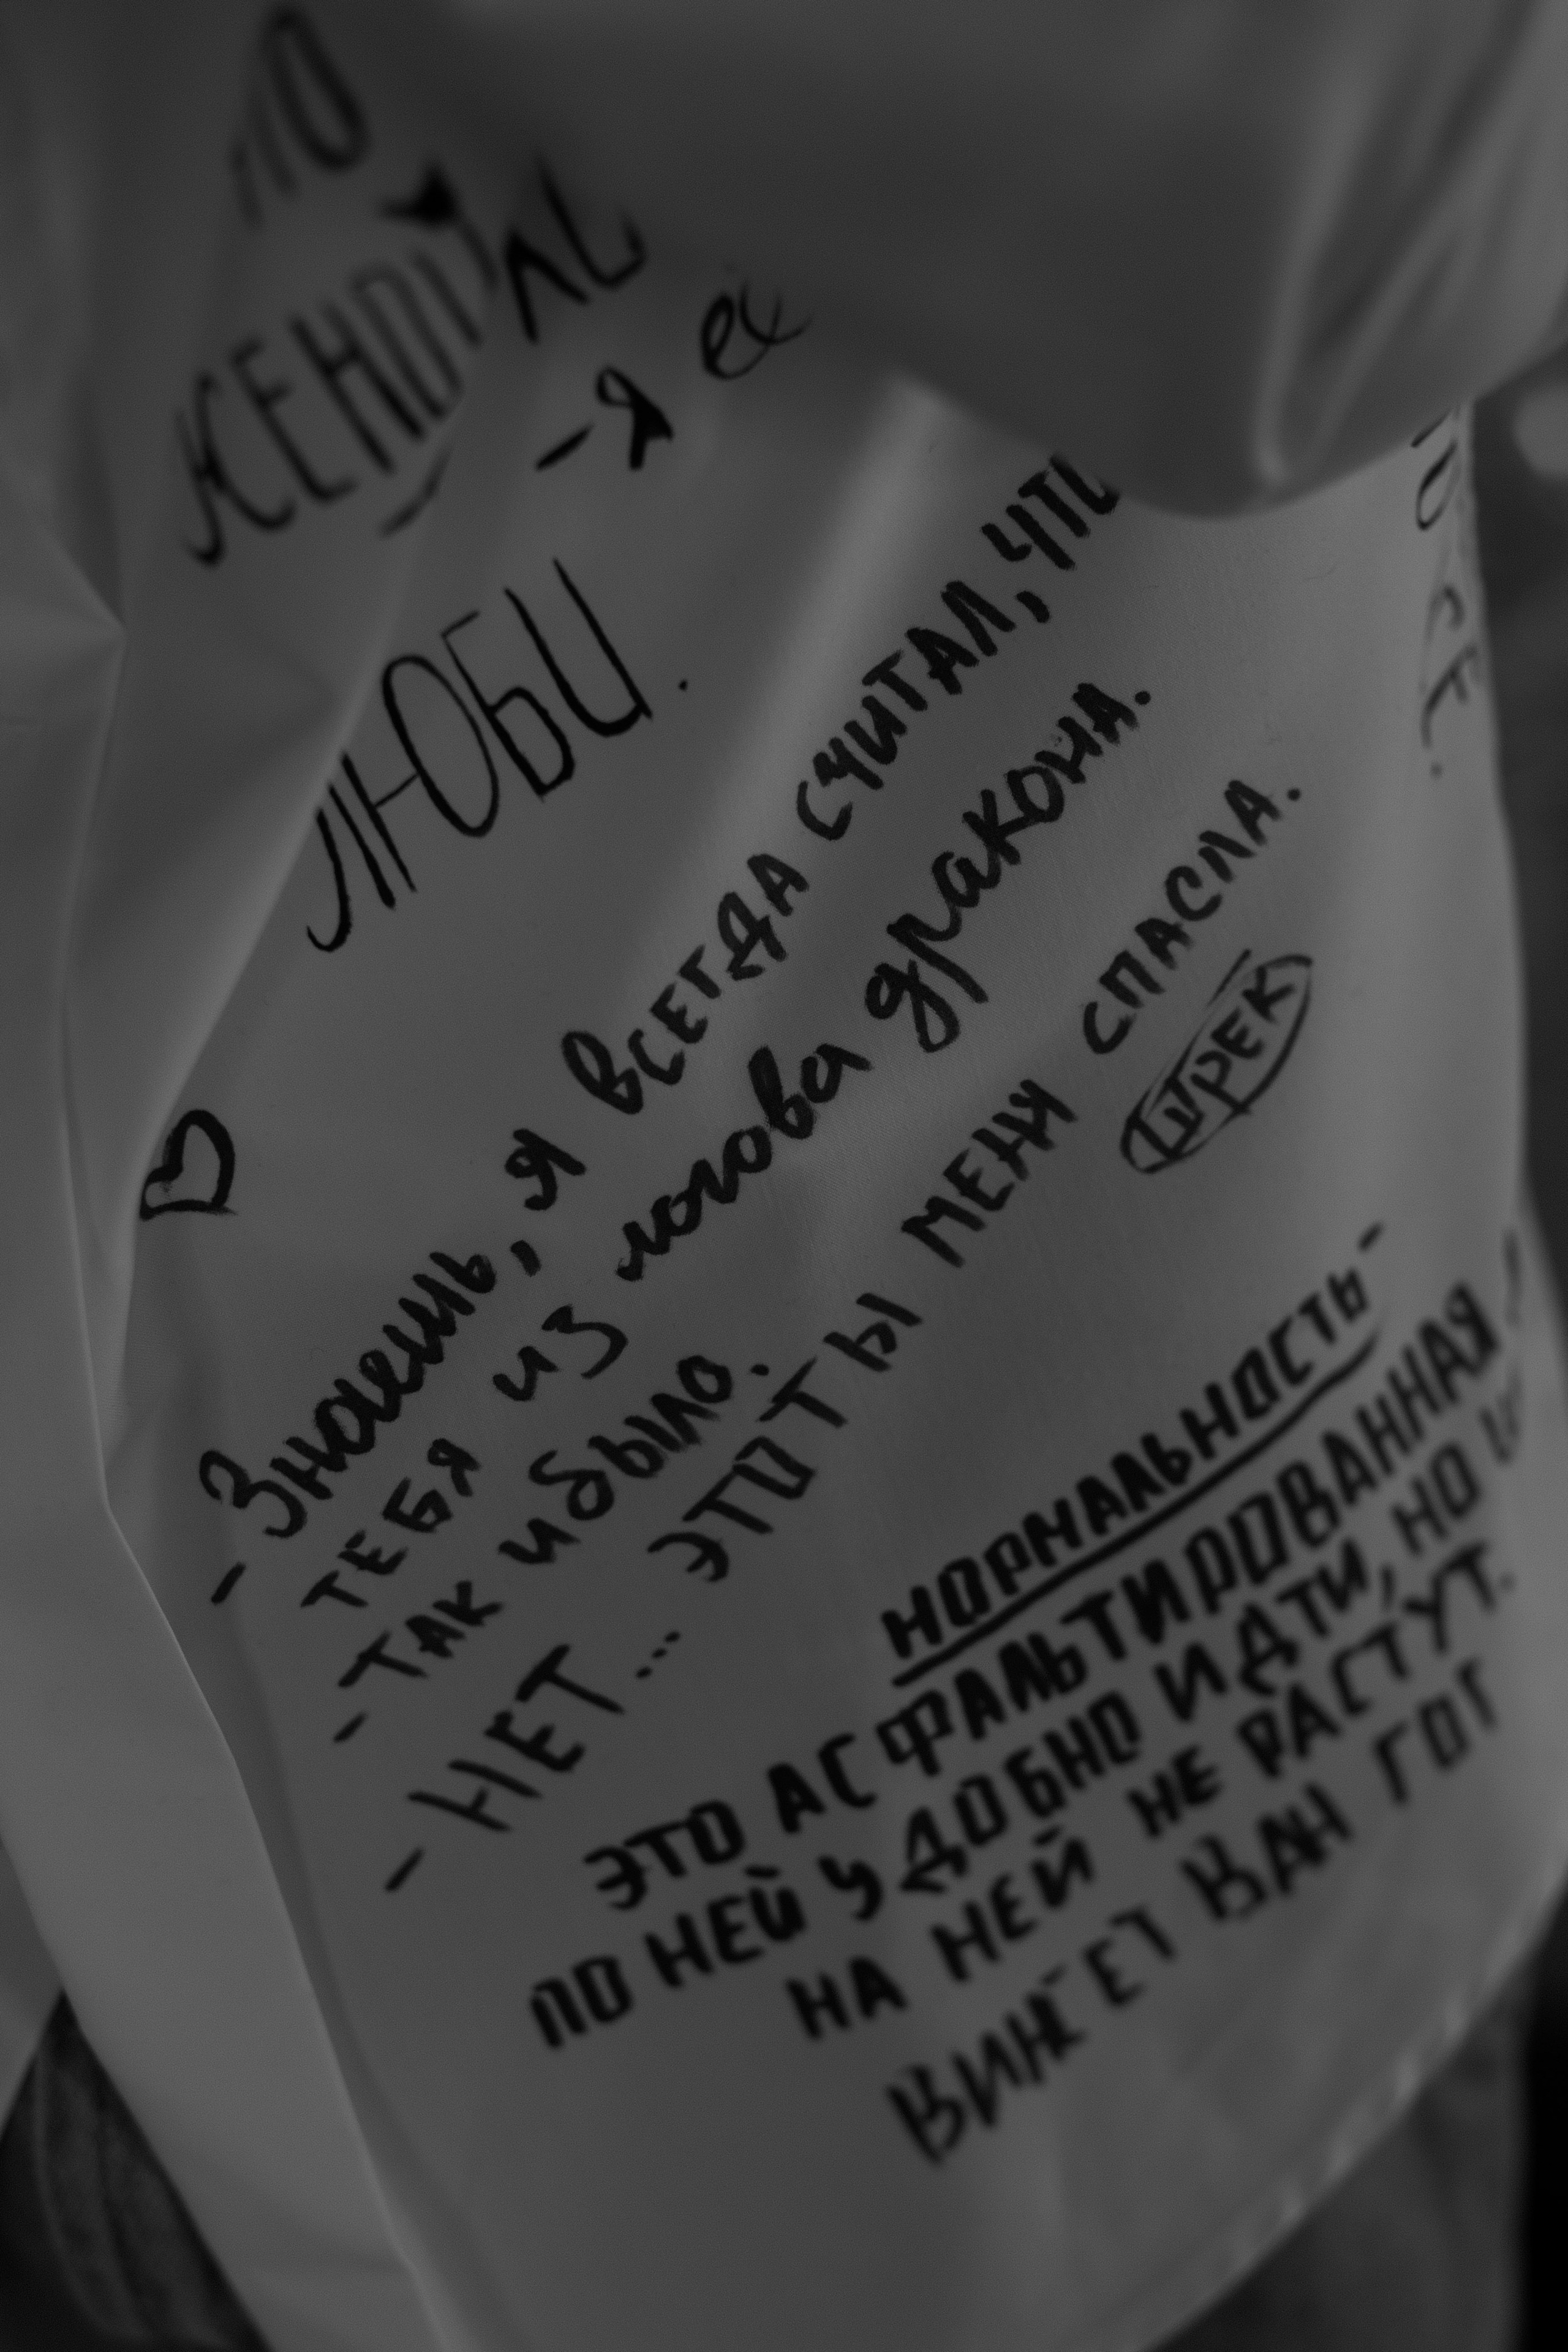 ЛЮБИ.
- Знаешь, я всегда считал, что
тебя из логова дракона.
- Так и было.
- Нет... это ты меня спасла.
ШРЕК
НОРМАЛЬНОСТЬ -
ЭТО АСФАЛЬТИРОВАННАЯ
ПО НЕЙ УДОБНО ИДТИ, НО
НА НЕЙ НЕ РАСТУТ.
ВИНСЕТ ВАН ГОГ